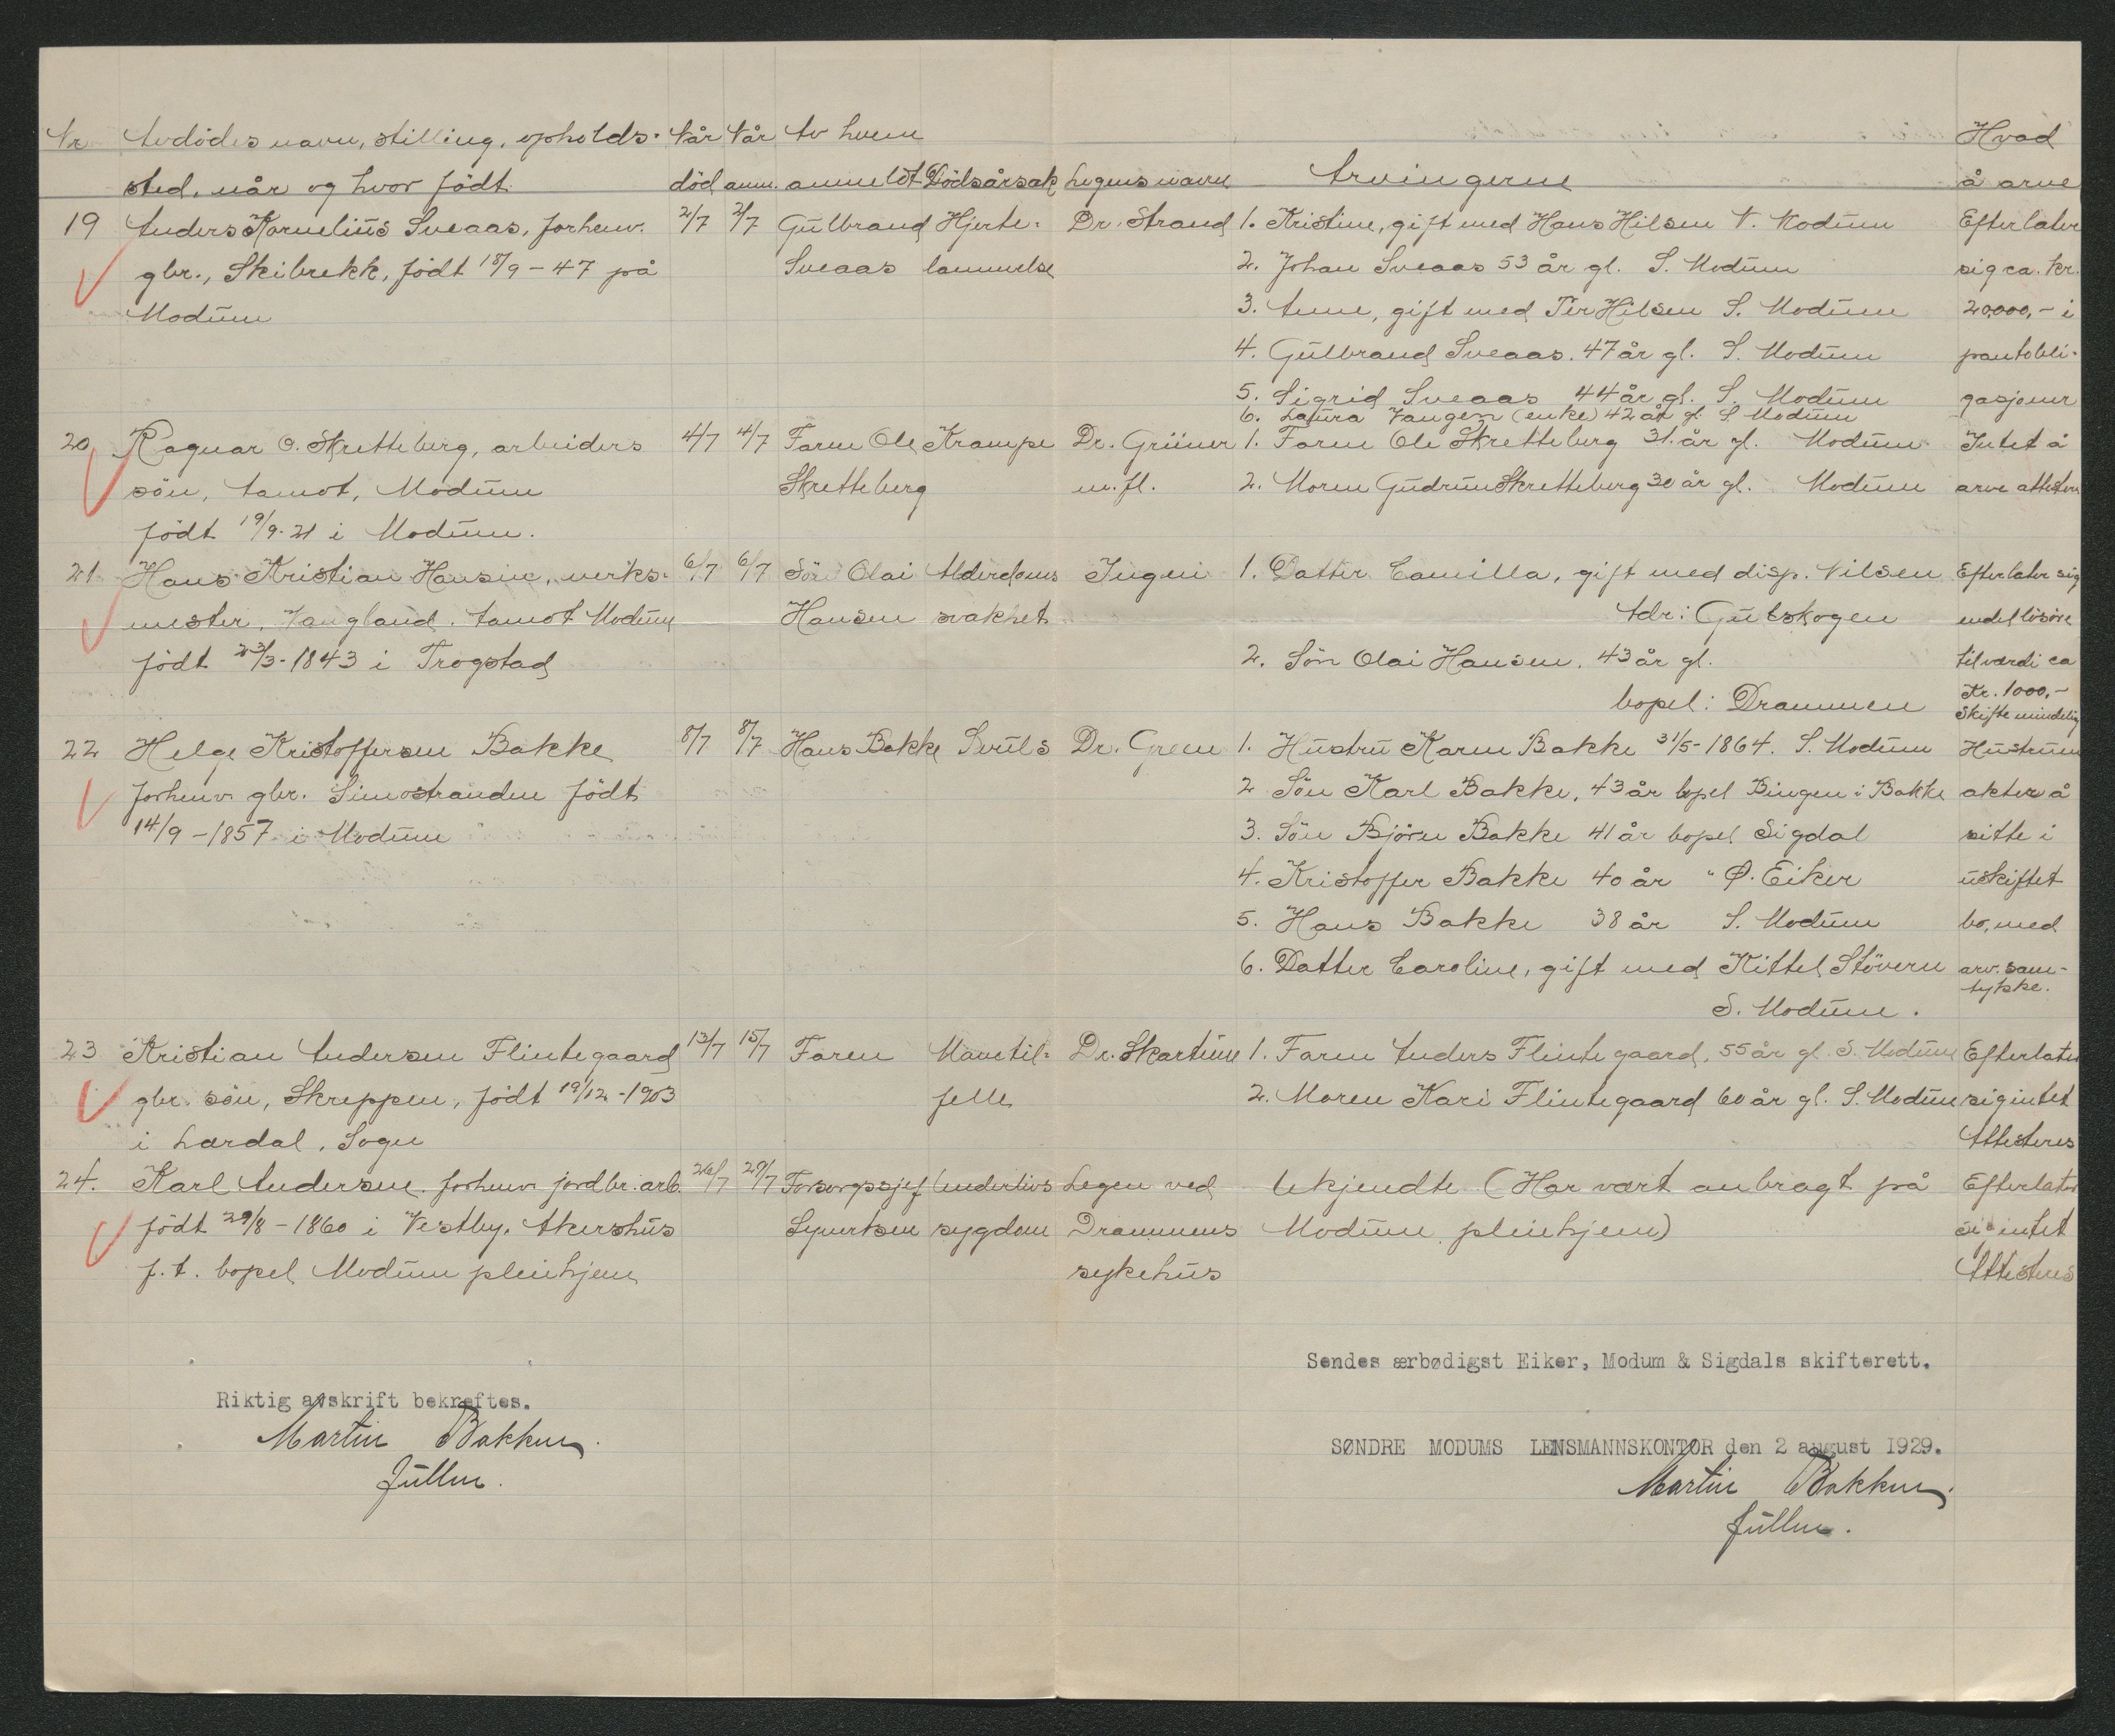 Nr Avdödes navn, stilling, opholds- Når Når Av hvem Hvad
sted, når og hvor födt. död anm. anmeldt Dödsårsak Legens navn Arvingerne å arve
19 Anders Kornelius Sveaas, forhenv. 2/7 2/7 Gulbrand Hjerte- Dr. Strand 1. Kristine, gift med Hans Hilsen N. Modum Efterlater
gbr., Skibrekk, födt 18/9-47 på Sveaas lammelse 2. Johan Sveaas 53 år gl. S. Modum sig ca. kr.
Modum 3. Anne, gift med Per Hilsen S. Modum 20,000,- i
4. Gulbrand Sveaas. 47 år gl. S. Modum pantobli-
5. Sigrid Sveaas 44 år gl. S. Modum gasjoner
6. Laura Vangen (enke) 42 år gl. S. Modum
20 Ragnar O. Skretteberg, arbeiders 4/7 4/7 Faren Ole Krampe Dr. Grüner 1. Faren Ole Skretteberg 31. år gl. Modum Intet å
sön, Åmot, Modum Skretteberg m.fl. 2. Moren Gudrun Skretteberg 30 år gl. Modum arve attesteres
födt 19/9-21 i Modum.
21 Hans Kristian Hansen, verks- 6/7 6/7 Sön Olai Alderdoms Ingen 1. Datter Camilla, gift med disp. Nilsen Efterlater sig
mester, Vangland. Åmot Modum Hansen svakhet Adr: Gulskogen endel lösöre
födt 23/3-1843 i Trogstad 2. Sön Olai Hansen. 43 år gl. til værdi ca
bopel: Drammen Kr. 1000,-
Skifte mindelig
22 Helge Kristoffersen Bakke 8/7 8/7 Hans Bakke Svuls Dr. Green 1. Hustru Karen Bakke 31/5-1864. S. Modum Hustruen
forhenv. gbr. Simostranden födt 2 Sön Karl Bakke, 43 år bopel Bingen i Bakke akter å
14/9-1857 i Modum 3. Sön Björn Bakke 41 år bopel Sigdal sitte i
4. Kristoffer Bakke 40 år " Ø. Eiker uskiftet
5. Hans Bakke 38 år S. Modum bo, med
6. Datter Caroline, gift med Kittel Stövern arv. sam-
tykke.
S. Modum.
23 Kristian Andersen Flintegaard 13/7 15/7 Faren Vanvtil- Dr. Skartum 1. Faren Anders Flintegaard, 55 år gl. S. Modum Efterlater
gbr. sön, Skreppen, födt 19/12-1903 felle 2. Moren Kari Flintegaard 60 år gl. S. Modum sig intet
i Lærdal, Sogn Attesteres
24. Karl Andersen. forhenv. jordbr. arb. 26/7 29/7 Forsorgssjef Underlivs Legen ved Ukjendte (Har vært anbragt på Efterlater
födt 29/8-1860 i Vestby. Akershus Syvertsen sygdom Drammens Modum pleiehjem) sig intet
f.t. bopel Modum pleiehjem sykehus Attesteres
Sendes ærbødigst Eiker, Modum & Sigdals skifterett.
Riktig avskrift bekreftes.
Martin Bakken
fullm.
SØNDRE MODUMS LENSMANNSKONTOR den 2 august 1929.
Martin Bakken
fullm.